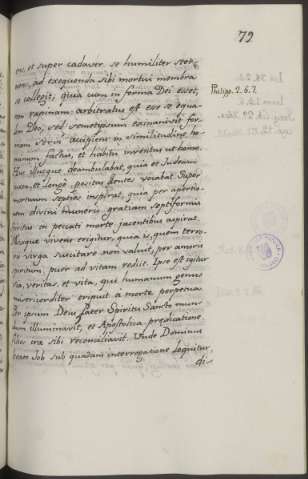 79
et super cadaver se humiliter
ad exequenda sibi mortui membra
se collegit, quia cum in forma Dei esset,
non rapinam arbitratus est esse se equa-
lem Deo, sed semetipsum exinanivit for-
mam servi accipiens in similitudine ho-
minum factus, et habitu inventus ut homo.
deambulabat, quia et Judeam
et longe positas Gentes vocabat. Super
mortuum septies inspirat, quia per aperitio-
nem divini muneris gratiam septiformis
Spiritus in peccati morte jacentibus aspirat.
Moxque vivens erigitur, quia is, quem terro-
ris virga suscitare non valuit, per amoris
spiritum, puer ad vitam rediit. Ipse est igitur
via, veritas, et vita, qui humanum genus
eripuit à morte perpetua.
Per ipsum Deus Pater Spiritu Sancto mun-
dum illuminavit, et Apostolica predicatione
sibi reconciliavit. Unde Dominus
beato Job sub quadam interrogatione loquitur,
di-
Philipp. 2. 6. 7.